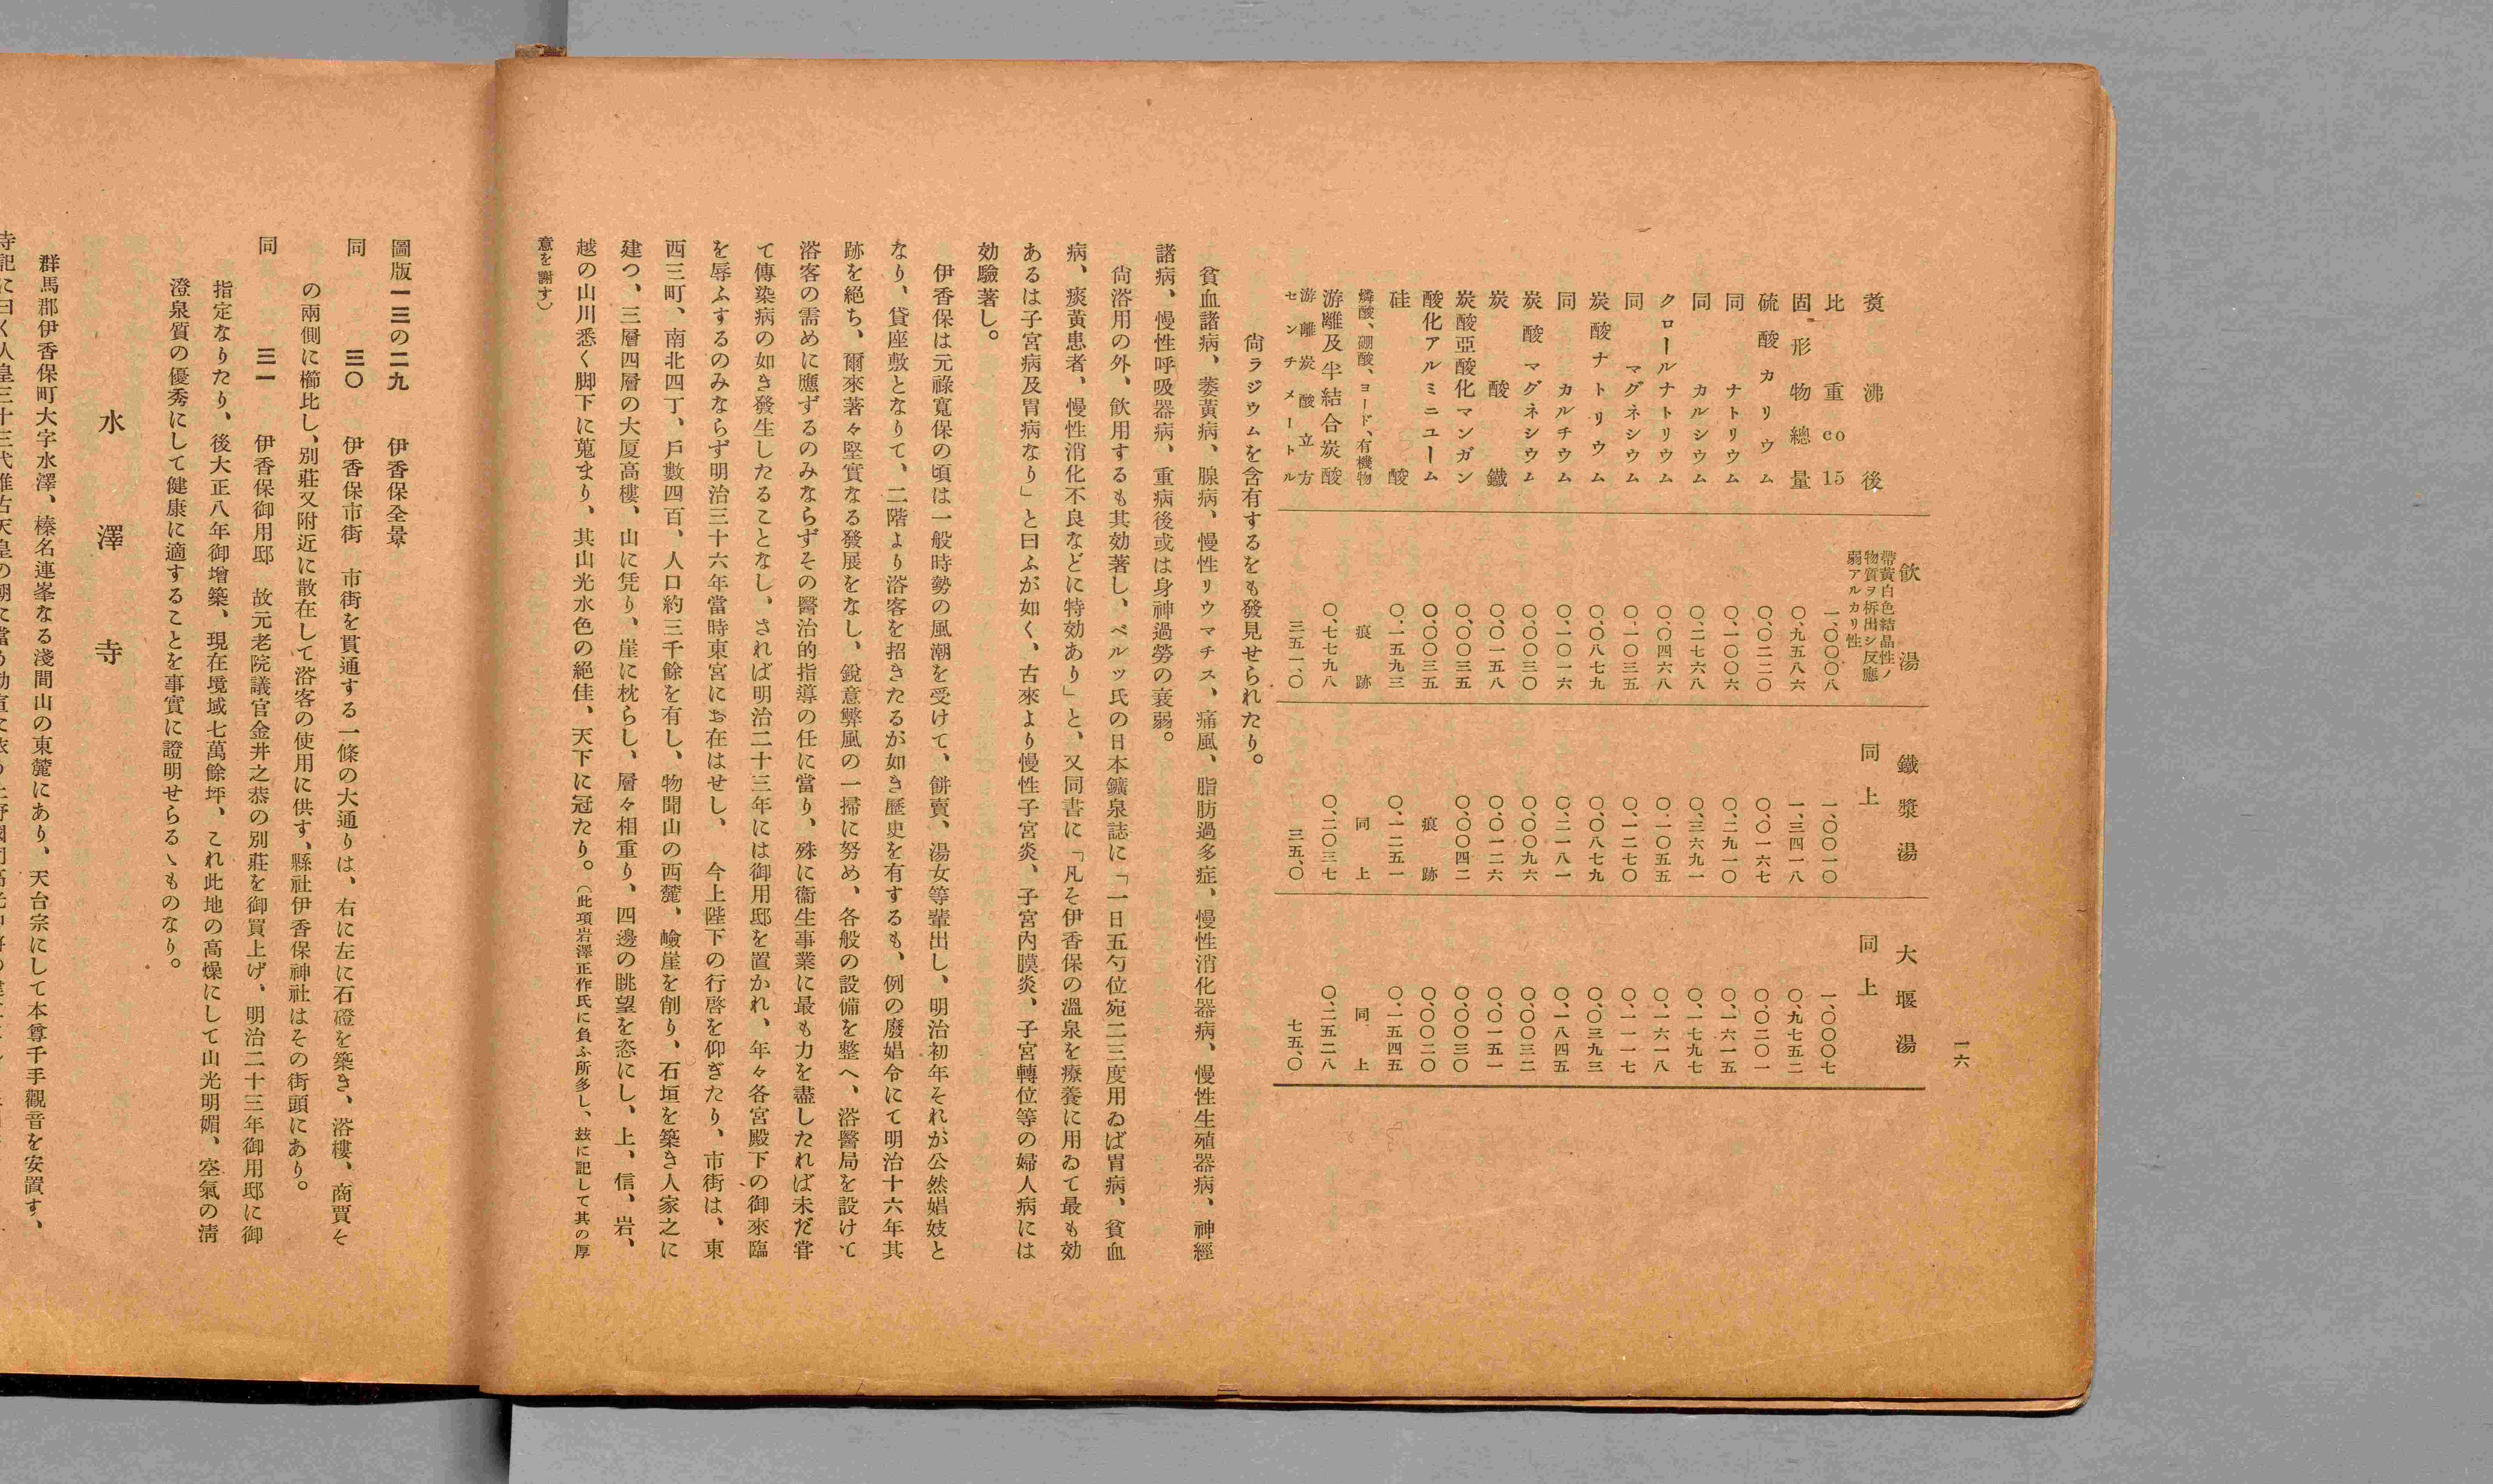 一六
飲湯 鐵漿湯 大堰湯
煑沸後 帶黃白色結晶性ノ物質ヲ析出シ反應弱アルカリ性 同上 同上
比重 co 15 一、〇〇〇〇八 一、〇〇一〇 一、〇〇〇七
固形物總量 〇、九五八六 一、三四一八 〇、九七五二
硫酸カリウム 〇、〇二二〇 〇、〇一六七 〇、〇二〇一
同ナトリウム 〇、一〇〇六 〇、二九一〇 〇、一六一五
同カルシウム 〇、二七六八 〇、三六九一 〇、一七九七
クロールナトリウム 〇、〇四六八 〇、一〇五五 〇、一六一八
同マグネシウム 〇、一〇三五 〇、一二七〇 〇、一一一七
炭酸ナトリウム 〇、〇八七九 〇、〇八七九 〇、〇三九三
同カルチウム 〇、一〇一六 〇、二一八一 〇、一八四五
炭酸マグネシウム 〇、〇〇三〇 〇、〇〇九六 〇、〇〇三二
炭酸鐵 〇、〇一五八 〇、〇一二六 〇、〇一五一
炭酸亞酸化マンガン 〇、〇〇三五 〇、〇〇四二 〇、〇〇三〇
酸化アルミニユーム 〇、〇〇三五 痕跡 〇、〇〇二〇
硅酸 〇、一五九三 〇、一二五一 〇、一五四五
燐酸、硼酸、ヨード、有機物 痕跡 同上 同上
游離及半結合炭酸 〇、七七九八 〇、二〇三七 〇、二五二八
游離炭酸立方センチメートル 三五一、〇 三五、〇 七五、〇
尙ラジウムを含有するをも發見せられたり。
貧血諸病、萎黃病、腺病、慢性リウマチス、痛風、脂肪過多症、慢性消化器病、慢性生殖器病、神經
諸病、慢性呼吸器病、重病後或は身神過勞の衰弱。
尙浴用の外、飮用するも其効著し、ベルツ氏の日本鑛泉誌に「一日五勺位宛二三度用ゐば胃病、貧血
病、痰黃患者、慢性消化不良などに特効あり」と、又同書に「凡そ伊香保の溫泉を療養に用ゐて最も効
あるは子宮病及胃病なり」と曰ふが如く、古來より慢性子宮炎、子宮内膜炎、子宮轉位等の婦人病には
効驗著し。
伊香保は元祿寬保の頃は一般時勢の風潮を受けて、餅賣、湯女等輩出し、明治初年それが公然娼妓と
なり、貸座敷となりて、二階より浴客を招きたるが如き歷史を有するも、例の廢娼令にて明治十六年其
跡を絕ち、爾來著々堅實なる發展をなし、銳意弊風の一掃に努め、各般の設備を整へ、浴醫局を設けて
浴客の需めに應ずるのみならずその醫治的指導の任に當り、殊に衞生事業に最も力を盡したれば未だ甞
て傳染病の如き發生したることなし。されば明治二十三年には御用邸を置かれ、年々各宮殿下の御來臨
を辱ふするのみならず明治三十六年當時東宮にお在はせし、 今上陛下の行啓を仰ぎたり、市街は、東
西三町、南北四丁、戶數四百、人口約三千餘を有し、物聞山の西麓、嶮崖を削り、石垣を築き人家之に
建つ、三層四層の大厦高樓、山に凭り、崖に枕らし、層々相重り、四邊の眺望を恣にし、上、信、岩、
越の山川悉く脚下に蒐まり、其山光水色の絕佳、天下に冠たり。（此項岩澤正作氏に負ふ所多し、玆に記して其の厚
意を謝す）
圖版一三の二九 伊香保全景
同 三〇 伊香保市街 市街を貫通する一條の大通りは、右に左に石磴を築き、浴樓、商賈そ
の兩側に櫛比し、別莊又附近に散在して浴客の使用に供す、縣社伊香保神社はその街頭にあり。
同 三一 伊香保御用邸 故元老院議官金井之恭の別莊を御買上げ、明治二十三年御用邸に御
指定なりたり、後大正八年御增築、現在境域七萬餘坪、これ此地の高燥にして山光明媚、空氣の淸
澄泉質の優秀にして健康に適することを事實に證明せらるゝものなり。
水澤寺
群馬郡伊香保町大字水澤、榛名連峯なる淺間山の東麓にあり、天台宗にして本尊千手觀音を安置す、